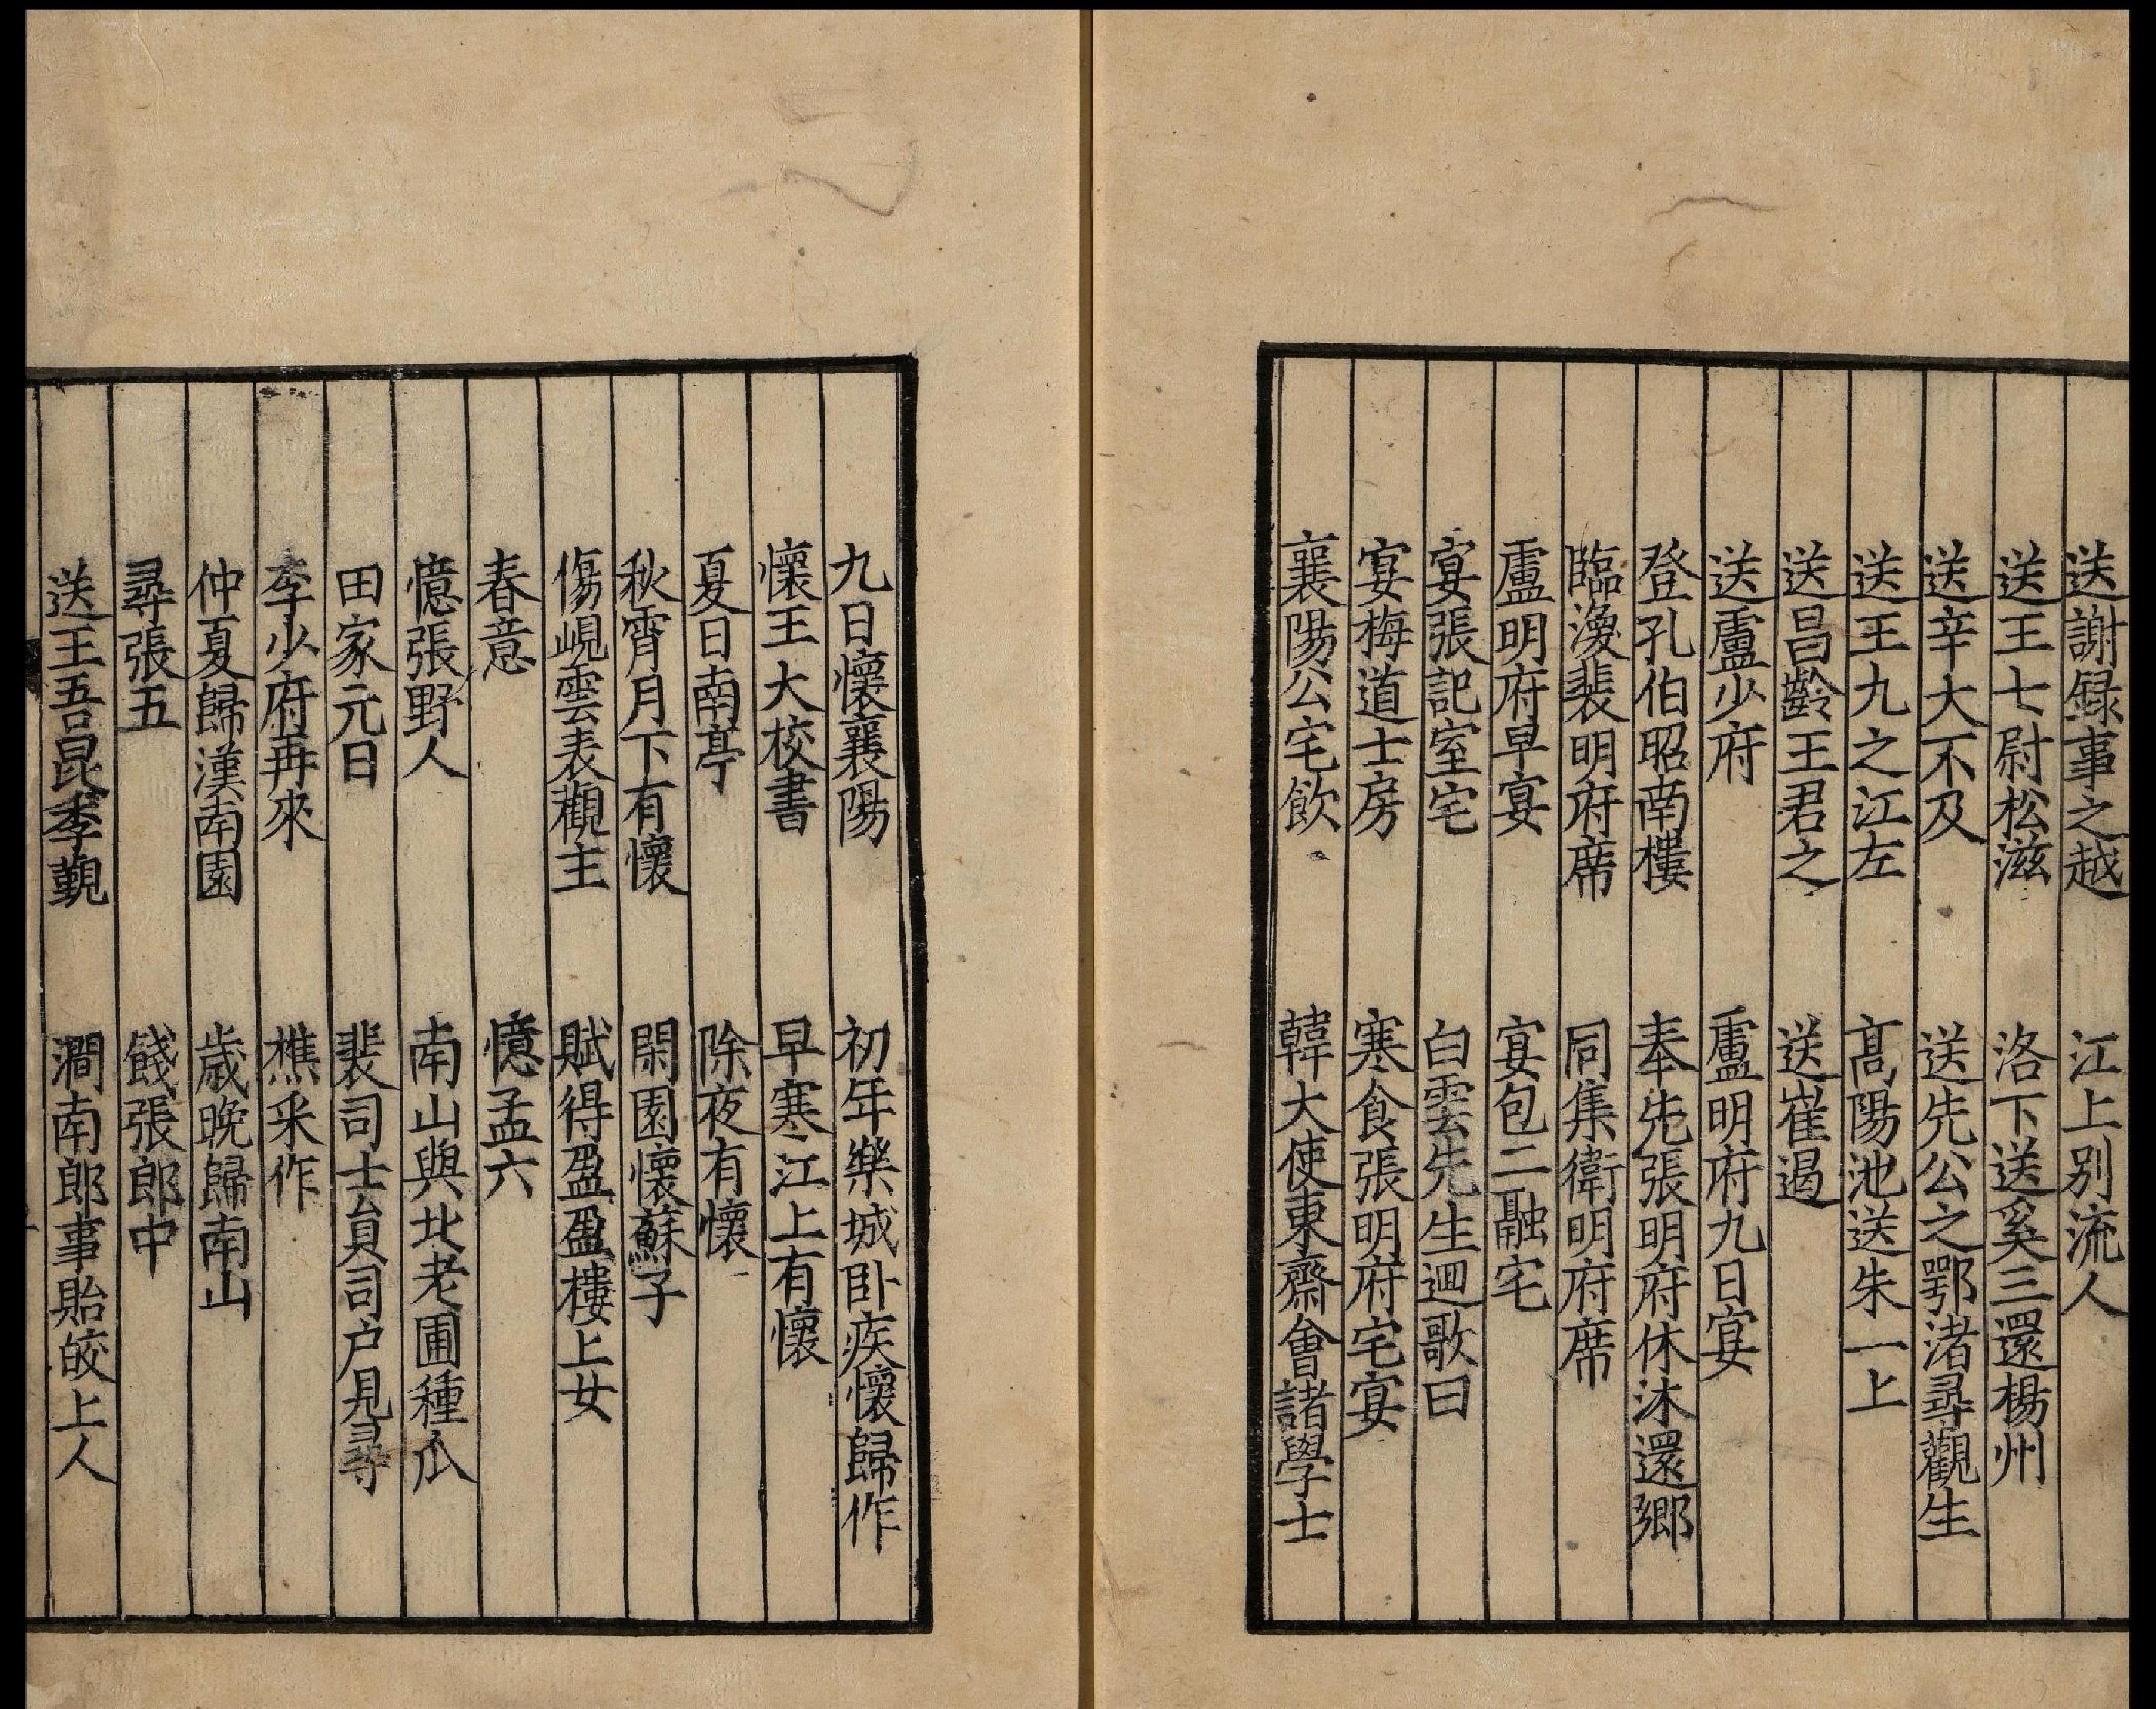 送謝録事之越　江上别流人
送王七尉松滋　洛下送奚三還楊州
送辛大不及　送先公之鄂渚尋觀生
送王九之江左　髙陽池送朱一上
送昌齡王君之　送崔遏
送盧少府　盧明府九日宴
登孔伯昭南樓　奉先張明府休沐還鄉
臨渙裴明府席　同集衛明府席
盧明府早宴　宴包二融宅
宴張記室宅　白雲先生迴歌曰
宴梅道士房　寒食張明府宅宴
襄陽公宅飲　韓大使東齋會諸學士
九日懷襄陽　初年樂城卧疾懷歸作
懷王大校書　早寒江上有懷
夏日南亭　除夜有懷
秋霄月下有懷　閑園懷蘇子
傷峴雲表觀主　賦得盈盈樓上女
春意　憶孟六
憶張野人　南山與北老圃種瓜
田家元日　裴司士貟司户見尋
李少府再來　樵采作
仲夏歸漢南園　歳晚歸南山
尋張五　餞張郎中
送王吾昆季覲　澗南郎事貽皎上人